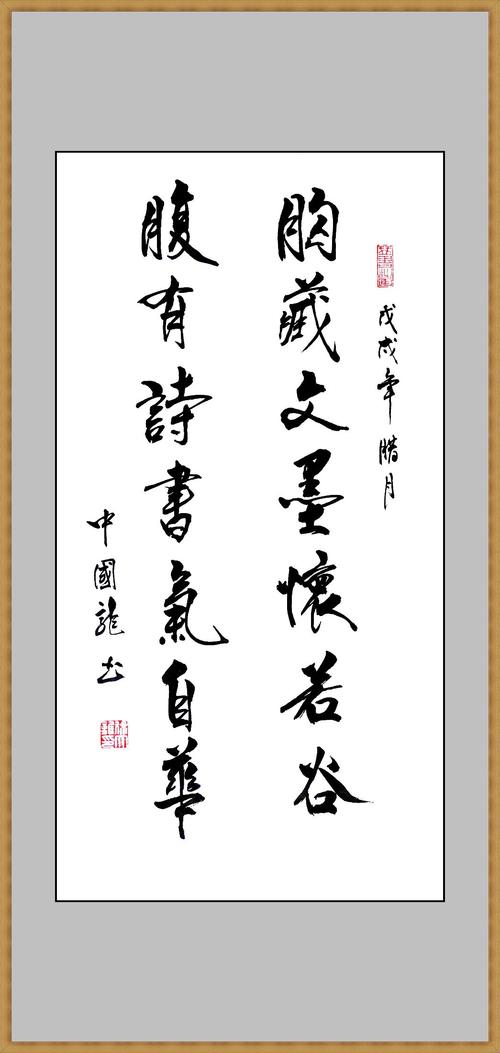 戊戌年腊月
胸藏文墨懷若谷
腹有詩書氣自華
中國龍书